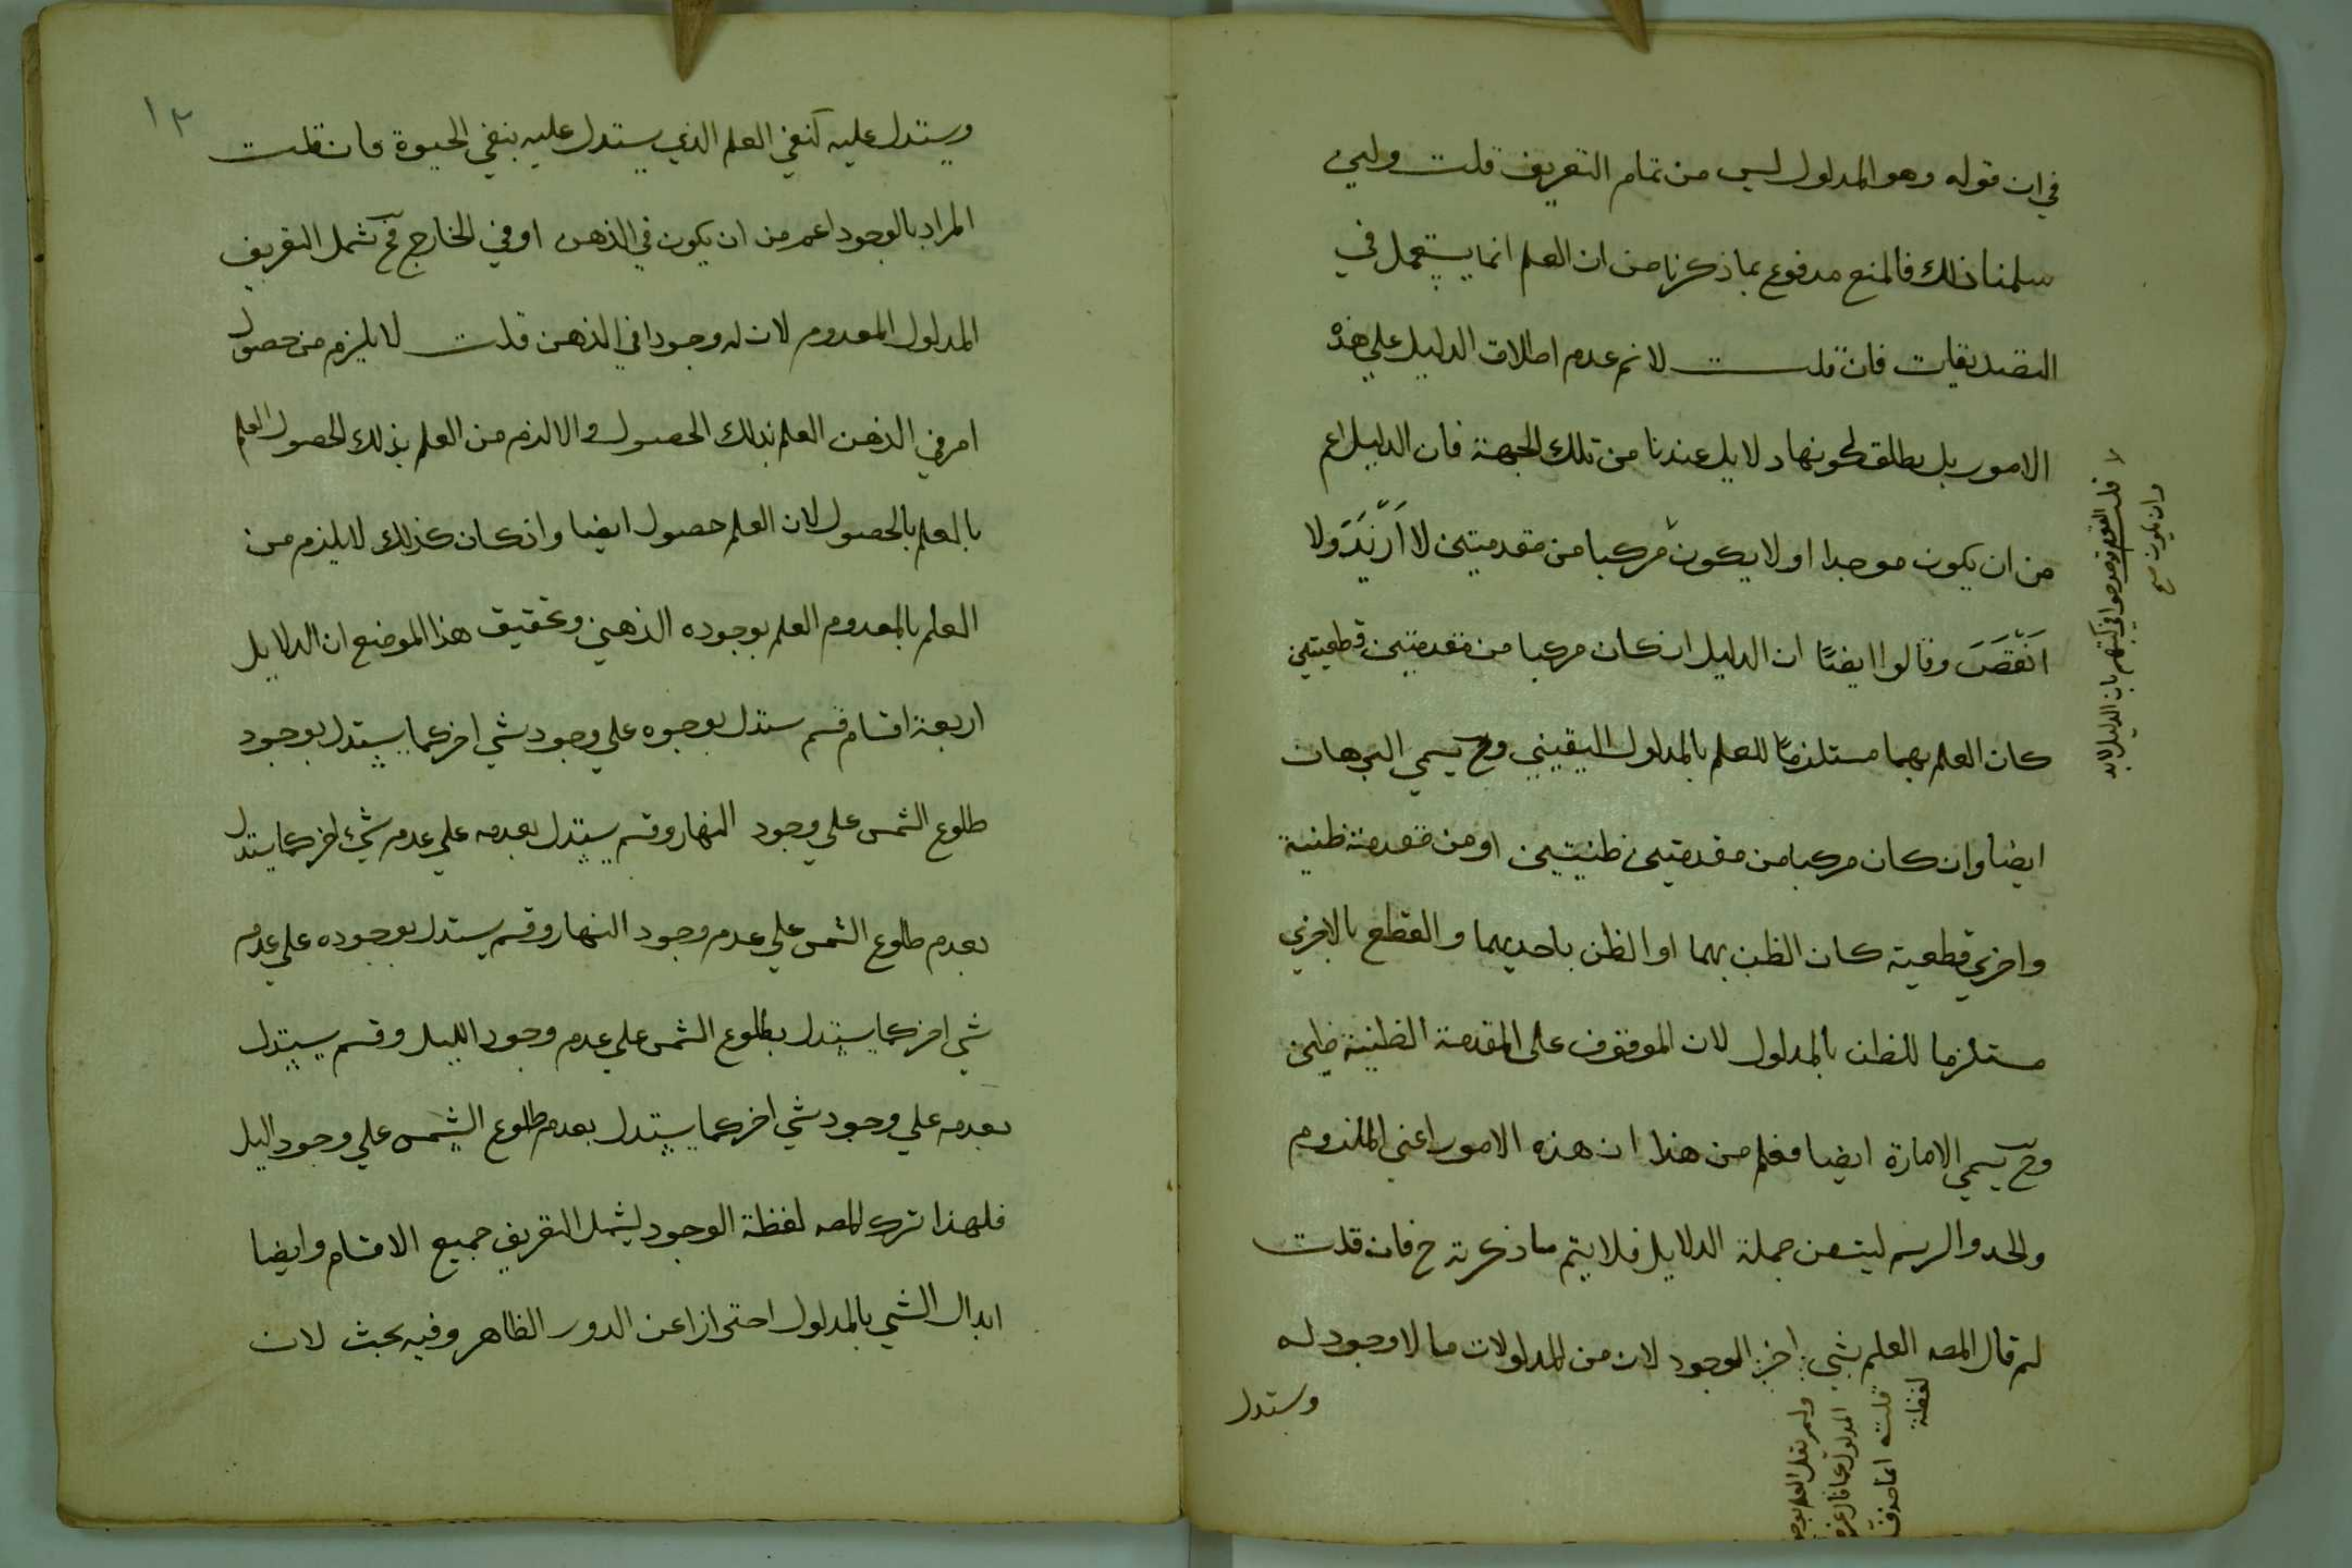 في ان قوله وهو المدلول ليس من تمام التعريف قلت ولين
سلمنا ذلك فالمنع مدفوع بما ذكرنا من ان العلم انما يستعمل في
التصديقات فان قلت لا نم عدم اطلاق الدليل علي هذه
الامور بل يطلق لكونها دلايل عندنا من تلك الجهة فان الدليل اعم
من ان يكون موجبا او لا يكون مركبا من مقدمتين لا اَزْيَدَ ولا
اَنْقَصَ وقالوا ايضًا ان الدليل ان كان مركبا من مقدمتين قطعيتين
كان العلم بهما مستلزمًا للعلم بالمدلول اليقيني وح يسمي البرهان
ايضا وان كان مركبا من مقدمتين ظنيتين او من مقدمة ظنية
واخري قطعية كان الظن بهما او الظن باحديهما والقطع بالاخري
مستلزما للظن بالمدلول لان الموقوف على المقدمة الظنية ظني
وح يسمي الامارة ايضا فعلم من هذا ان هذه الامور اعني الملزوم
والحد والرسم ليت من جملة الدلايل فلا يتم ما ذكرته ح فان قلت
لم قال المصه العلم بشي اخر الوجود لان من المدلولات ما لا وجود له
ويستدل
لا قلت القوم قد صرحوا في كتبهم بان الدليل لا بد
وان يكون صح
لفظة
قلت انما حذف
ولم يقل العلم بوجود
١٢
ويستدل عليه كنفي العلم الذي يستدل عليه بنفي الحيوة فان قلت
المراد بالوجود اعم من ان يكون في الذهن او في الخارج فح يشمل التعريف
المدلول المعدوم لان له وجودا في الذهن قلت لا يلزم من حصول
امر في الذهن العلم بذلك الحصول والا لزم من العلم بذلك الحصول العلم
بالعلم بالحصول لان العلم حصول ايضا وان كان كذلك لا يلزم من
العلم بالمعدوم العلم بوجوده الذهني وتحقيق هذا الموضع ان الدلايل
اربعة اقسام قسم يستدل بوجوه علي وجود شي اخر كما يستدل بوجود
طلوع الشمس علي وجود النهار وقسم يستدل بعدمه علي عدم شي اخر كما يستدل
بعدم طلوع الشمس علي عدم وجود النهار وقسم يستدل بوجوده علي عدم
شي اخر كما يستدل بطلوع الشمس علي عدم وجود الليل وقسم يستدل
بعدمه علي وجود شي اخر كما يستدل بعدم طلوع الشمس علي وجود اليل
فلهذا ترك المصه لفظة الوجود ليشمل التعريف جميع الاقسام وايضا
ابدال الشي بالمدلول احترازا عن الدور الظاهر وفيه بحث لان